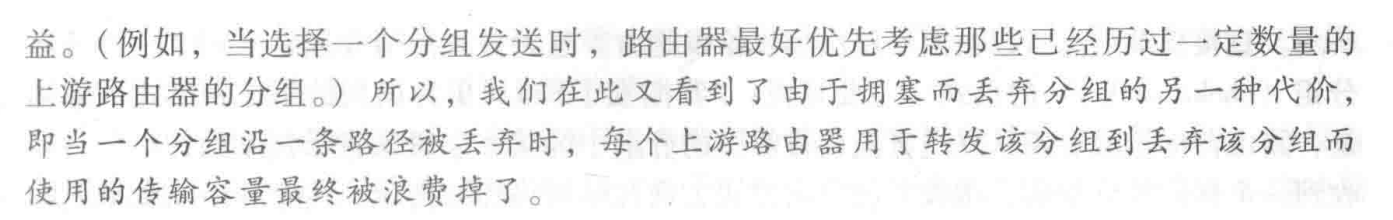 益。(例如，当选择一个分组发送时，路由器最好优先考虑那些已经历过一定数量的
上游路由器的分组。) 所以，我们在此又看到了由于拥塞而丢弃分组的另一种代价，
即当一个分组沿一条路径被丢弃时，每个上游路由器用于转发该分组到丢弃该分组而
使用的传输容量最终被浪费掉了。